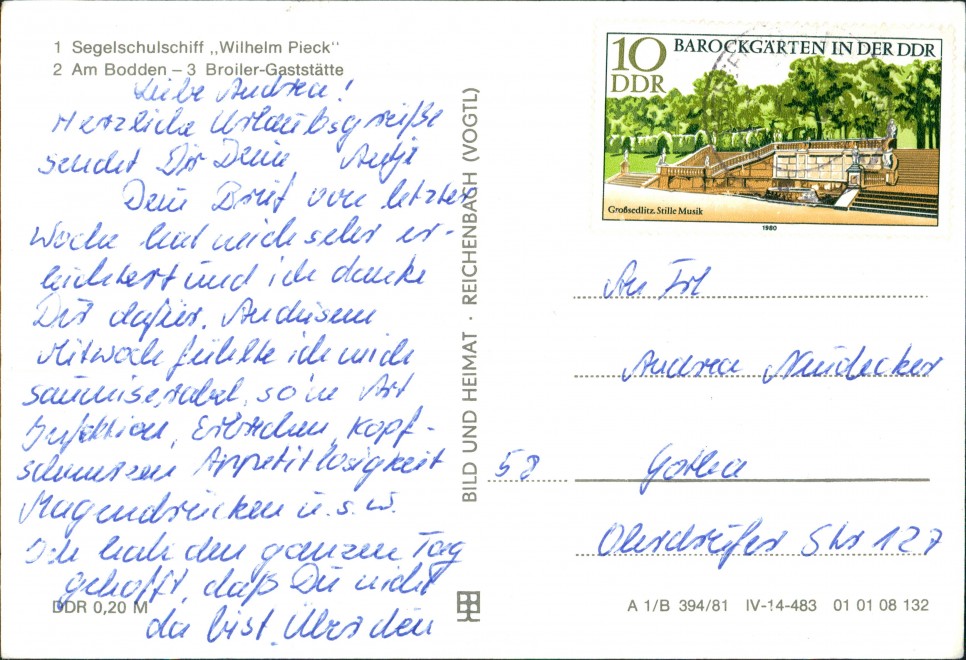 1 Segelschulschiff „Wilhelm Pieck"
2 Am Bodden – 3 Broiler-Gaststätte
Liebe Andrea!
Herzliche Urlaubsgrüße
sendet Dir Deine Antje
Dein Brief von letzter
Woche hat mich sehr er-
leichtert und ich danke
Dir dafür. An diesem
Mittwoch fühlte ich mich
saumiserabel, so'ne Art
Infektion, Erbrechen, Kopf-
schmerzen Appetitlosigkeit
Magendrücken u.s.w.
Ich hab den ganzen Tag
gehofft, daß Du nicht
da bist. Über den
DDR 0,20 M
BILD UND HEIMAT · REICHENBACH (VOGTL)
10
DDR
BAROCKGÄRTEN IN DER DDR
Großsedlitz. Stille Musik
1980
An Frl
Andrea Neudecker
58 Gotha
Ohrdrufer Str 127
A 1/B 394/81 IV-14-483 01 01 08 132